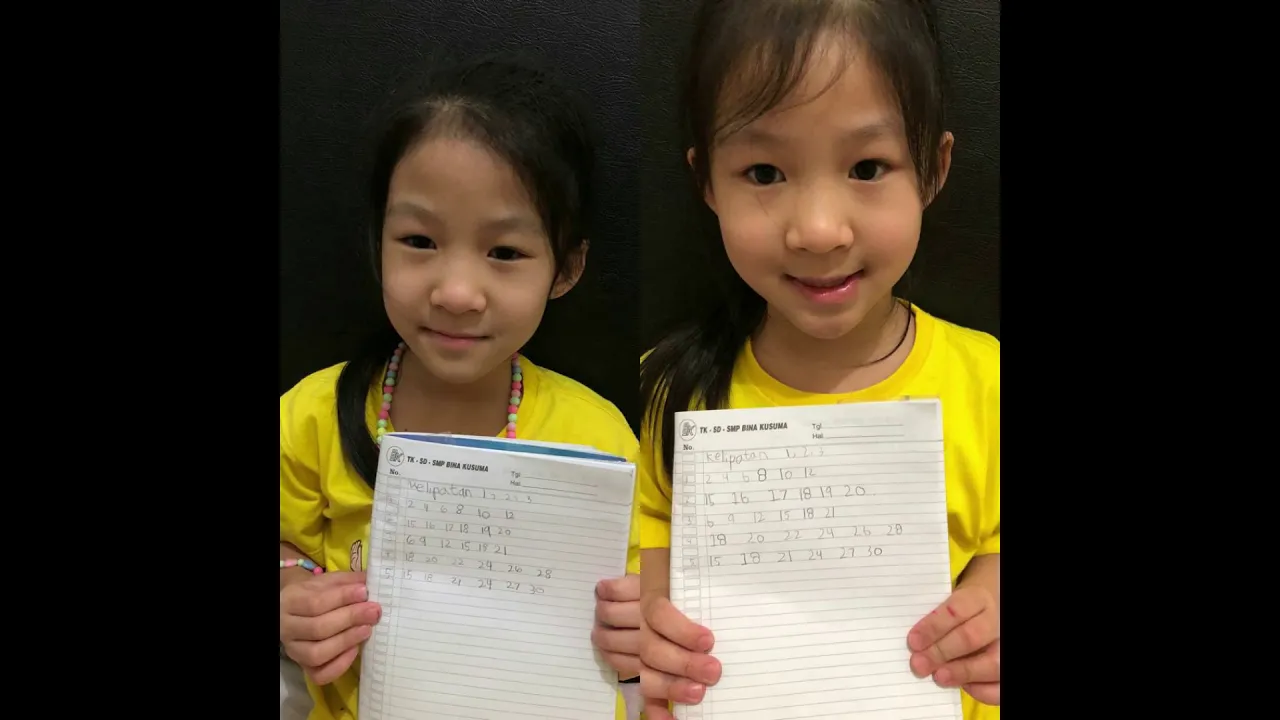 TK - SD - SMP BINA KUSUMA
Tgl
Hal
No.
Kelipatan 1, 2, 3
1 2 4 6 8 10 12
2 15 16 17 18 19 20
3 6 9 12 15 18 21
4 18 20 22 24 26 28
5 15 18 21 24 27 30
TK - SD - SMP BINA KUSUMA
Tgl
Hal
No.
Kelipatan 1, 2, 3
1 2 4 6 8 10 12
2 15 16 17 18 19 20
3 6 9 12 15 18 21
4 18 20 22 24 26 28
5 15 18 21 24 27 30